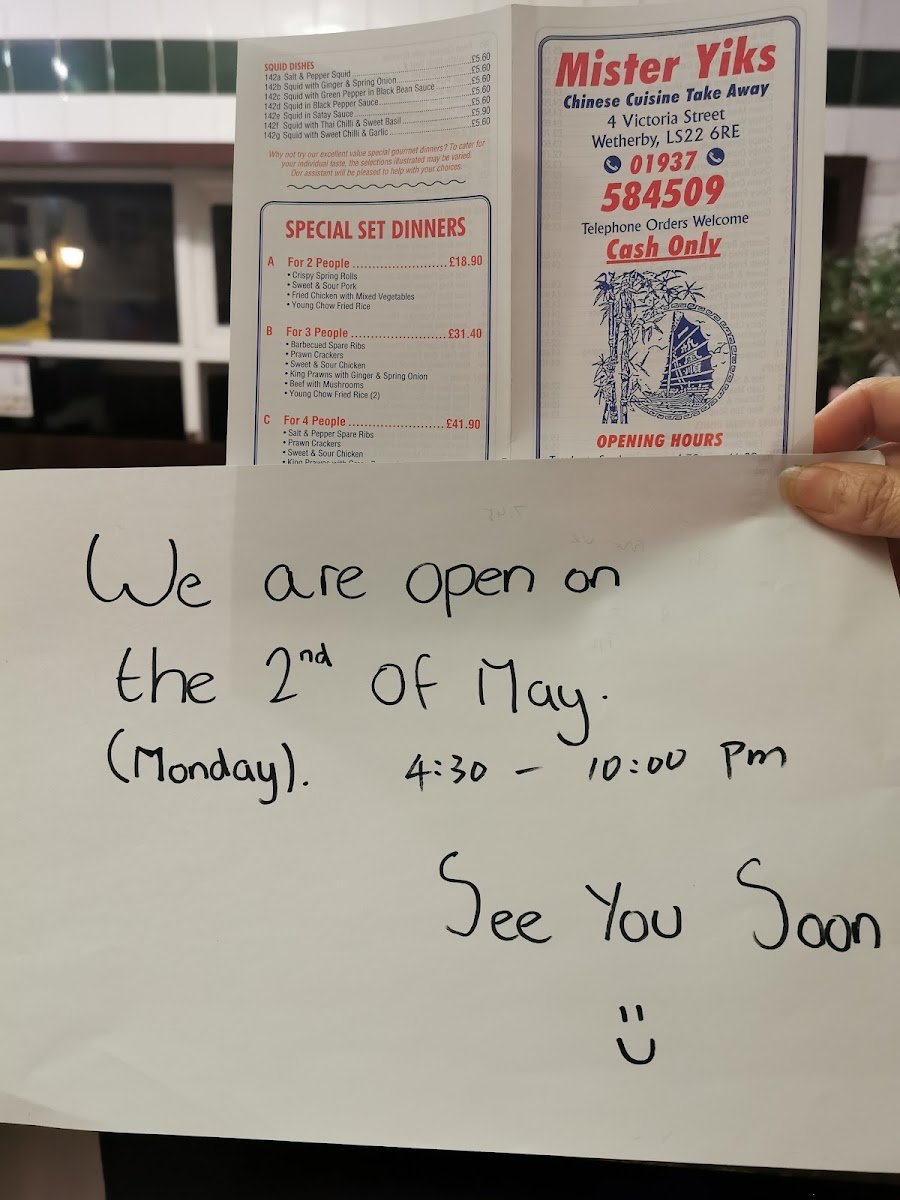 SQUID DISHES
142a Salt & Pepper Squid £5.60
142b Squid with Ginger & Spring Onion £5.60
142c Squid with Green Pepper in Black Bean Sauce £5.60
142d Squid in Black Pepper Sauce £5.60
142e Squid in Satay Sauce £5.60
142f Squid with Thai Chilli & Sweet Basil £5.90
142g Squid with Sweet Chilli & Garlic £5.60
Why not try our excellent value special gourmet dinners? To cater for
your individual taste, the selections illustrated may be varied.
Our assistant will be pleased to help with your choices.
SPECIAL SET DINNERS
A For 2 People £18.90
• Crispy Spring Rolls
• Sweet & Sour Pork
• Fried Chicken with Mixed Vegetables
• Young Chow Fried Rice
B For 3 People £31.40
• Barbecued Spare Ribs
• Prawn Crackers
• Sweet & Sour Chicken
• King Prawns with Ginger & Spring Onion
• Beef with Mushrooms
• Young Chow Fried Rice (2)
C For 4 People £41.90
• Salt & Pepper Spare Ribs
• Prawn Crackers
• Sweet & Sour Chicken
• King Prawns with
Mister Yiks
Chinese Cuisine Take Away
4 Victoria Street
Wetherby, LS22 6RE
01937
584509
Telephone Orders Welcome
Cash Only
OPENING HOURS
We are open on
the 2nd of May.
(Monday). 4:30 - 10:00 Pm
See You Soon